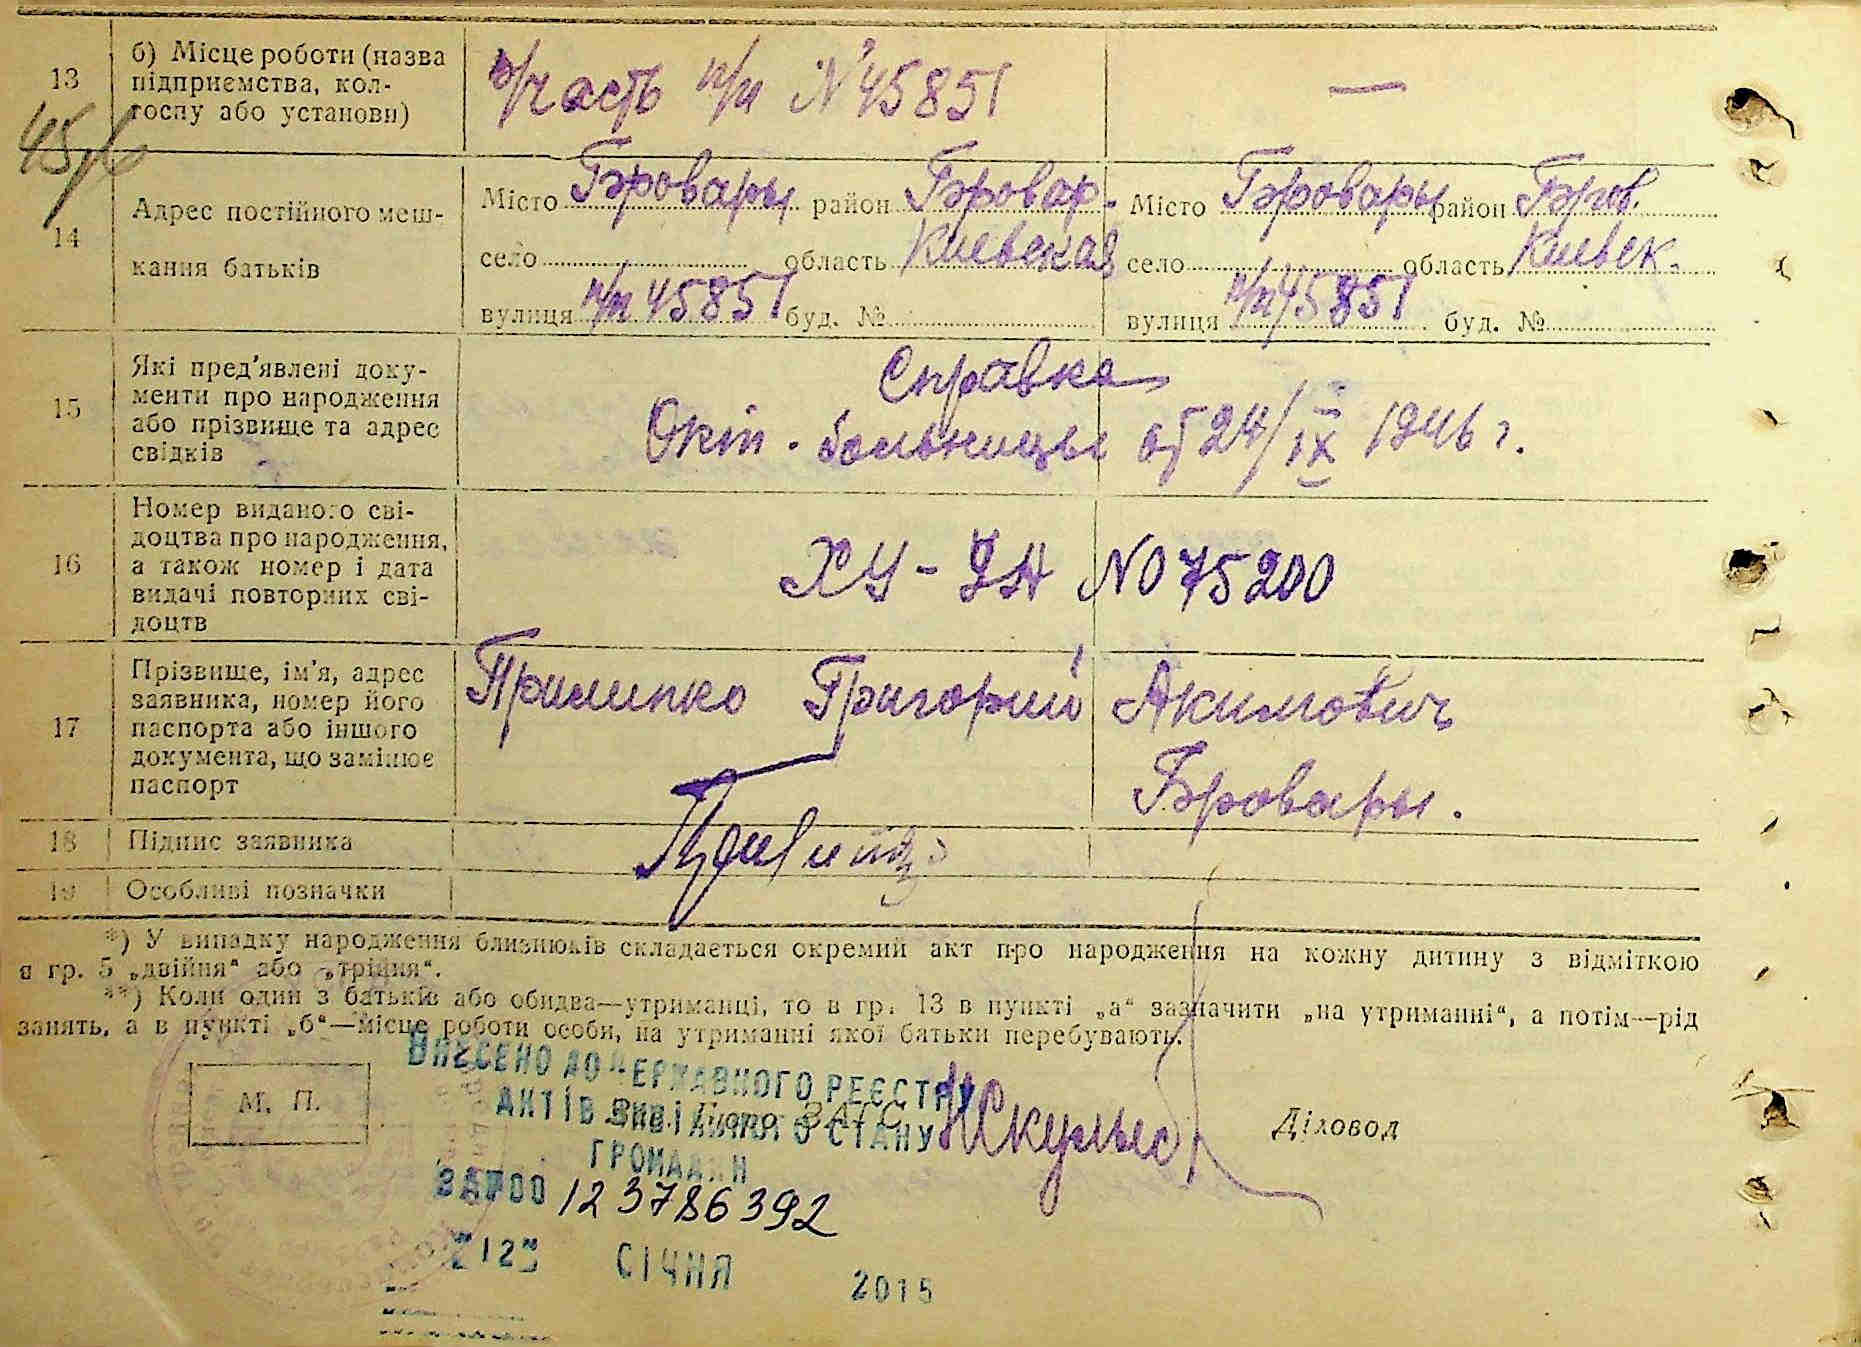 13
б) Місце роботи (назва
підприємства, кол-
госпу або установи)
в/часть п/п №45851
—
14
Адрес постійного меш-
кання батьків
Місто Бровары район Бровар.
село область Киевская
вулиця п/п 45851 буд. №
Місто Бровары район Бров.
село область Киевск.
вулиця п/п 45851 буд. №
15
Які пред'явлені доку-
менти про народження
або прізвище та адрес
свідків
Справка
больницы от 24/IX 1946 г.
16
Номер виданого сві-
доцтва про народження,
а також номер і дата
видачі повторних сві-
доцтв
№ 075200
17
Прізвище, ім'я, адрес
заявника, номер його
паспорта або іншого
документа, що замінює
паспорт
Григорий Акимович
Бровары.
18
Підпис заявника
19
Особливі позначки
*) У випадку народження близнюків складається окремий акт про народження на кожну дитину з відміткою
в гр. 5 „двійня“ або „трійня“.
**) Коли один з батьків або обидва—утриманці, то в гр. 13 в пункті „а“ зазначити „на утриманні“, а потім—рід
занять, а в пункті „б“—місце роботи особи, на утриманні якої батьки перебувають.
М. П.
ВНЕСЕНО ДО ДЕРЖАВНОГО РЕЄСТРУ
АКТІВ ЦИВІЛЬНОГО СТАНУ
ГРОМАДЯН
ЗА №00123786392
"12" СІЧНЯ 2015
Зав. Бюро ЗАГС
Діловод